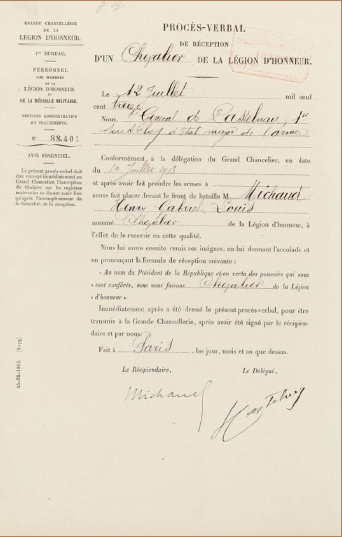 GRANDE CHANCELLERIE
DE LA
LÉGION D'HONNEUR.
1er BUREAU.
PERSONNEL
DES MEMBRES
DE LA
LÉGION D'HONNEUR
ET DE
LA MÉDAILLE MILITAIRE.
SERVICES ADMINISTRATIFS
DU TRAITEMENTS.
N° 88.401
AVIS ESSENTIEL.
Le présent procès-verbal doit
être renvoyé immédiatement au
Grand Chancelier, l'inscription
du titulaire sur les registres
matricules ne devant avoir lieu
qu'après l'accomplissement de
la formalité de la réception.
PROCÈS-VERBAL
DE RÉCEPTION
D'UN Chevalier DE LA LÉGION D'HONNEUR.
Le 12 Juillet mil neuf
cent treize
Nous, Général de Castelnau, 1er
Sous Chef d'Etat major de l'armée
Conformément, à la délégation du Grand Chancelier, en date
du 10 Juillet 1913
et après avoir fait prendre les armes à
avons fait placer devant le front de bataille M Michaud
Henri Gabriel Louis
nommé Chevalier de la Légion d'honneur, à
l'effet de le recevoir en cette qualité.
Nous lui avons ensuite remis ses insignes, en lui donnant l'accolade et
en prononçant la formule de réception suivante :
« Au nom du Président de la République et en vertu des pouvoirs qui nous
« sont conférés, nous vous faisons Chevalier de la Légion
« d'honneur ».
Immédiatement après a été dressé le présent procès-verbal, pour être
transmis à la Grande Chancellerie, après avoir été signé par le récipien-
daire et par nous.
Fait à Paris, les jour, mois et an que dessus.
Le Récipiendaire,
Le Délégué,
Michaud